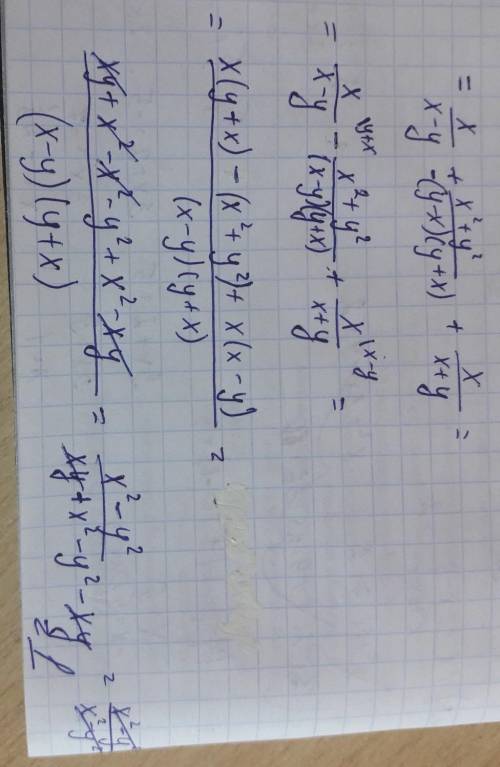 = x/(x-y) + (x²+y²)/(-(y-x)(y+x)) + x/(x+y) =
= x^(y+x)/(x-y) - (x²+y²)/((x-y)(y+x)) + x^(x-y)/(x+y) =
= (x(y+x) - (x²+y²) + x(x-y))/((x-y)(y+x)) =
(xy + x² - x² - y² + x² - xy)/((x-y)(y+x)) = x² - y²
xy + x² - y² - xy
= (x² - y²)/(x² - y²)